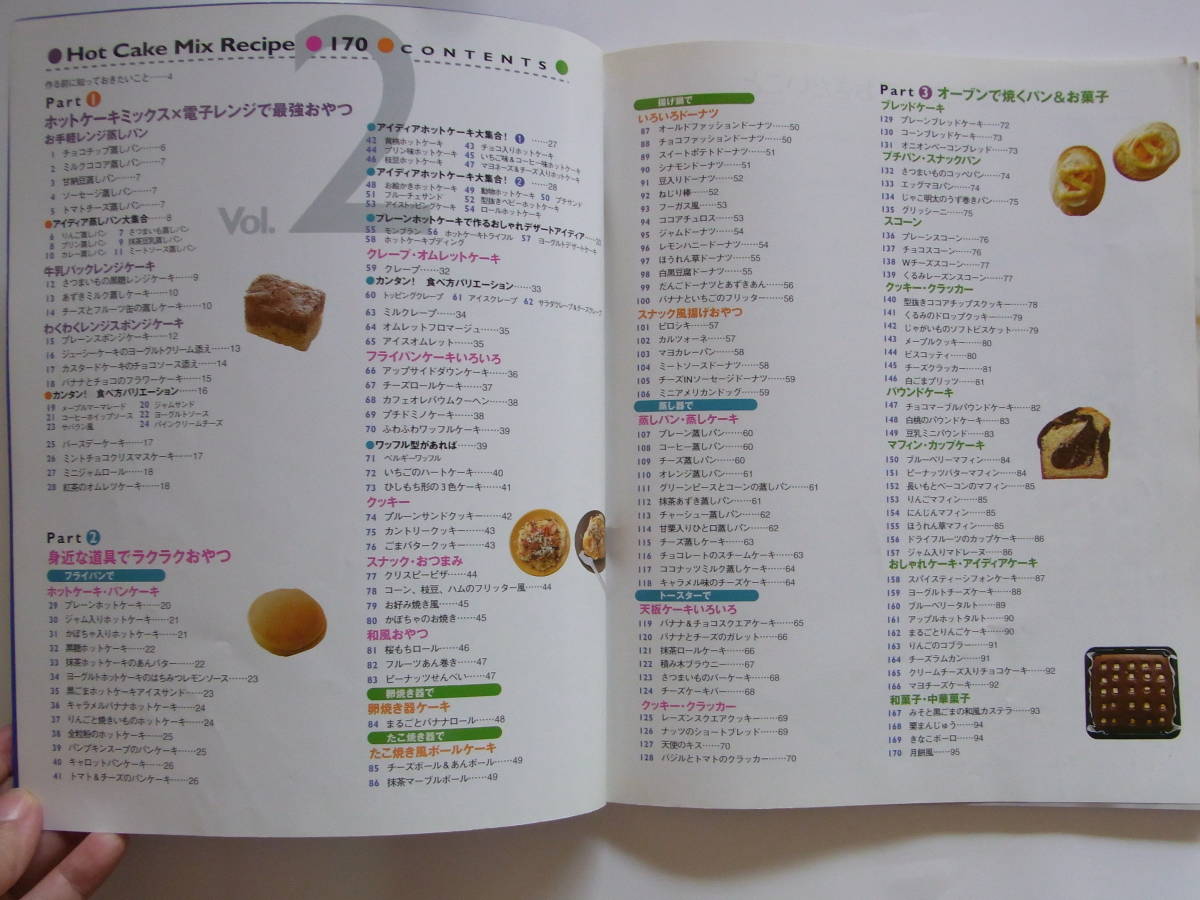 Hot Cake Mix Recipe 170 CONTENTS
Vol. 2
作る前に知っておきたいこと……4
Part 1
ホットケーキミックス×電子レンジで最強おやつ
お手軽レンジ蒸しパン
1 チョコチップ蒸しパン……6
2 ミルクココア蒸しパン……7
3 甘納豆蒸しパン……7
4 ソーセージ蒸しパン……7
5 トマトチーズ蒸しパン……7
●アイディア蒸しパン大集合……8
6 りんご蒸しパン 7 さつまいも蒸しパン
8 プリン蒸しパン 9 抹茶豆乳蒸しパン
10 カレー蒸しパン 11 ミートソース蒸しパン
牛乳パックレンジケーキ
12 さつまいもの黒糖レンジケーキ……9
13 あずきミルク蒸しケーキ……10
14 チーズとフルーツ缶の蒸しケーキ……10
わくわくレンジスポンジケーキ
15 プレーンスポンジケーキ……12
16 ジューシーケーキのヨーグルトクリーム添え……13
17 カスタードケーキのチョコソース添え……14
18 バナナとチョコのフラワーケーキ……15
●カンタン! 食べ方バリエーション……16
19 メープルマーマレード 20 ジャムサンド
21 コーヒーホイップソース 22 ヨーグルトソース
23 サバラン風 24 パインクリームチーズ
25 バースデーケーキ……17
26 ミントチョコクリスマスケーキ……17
27 ミニジャムロール……18
28 紅茶のオムレツケーキ……18
Part 2
身近な道具でラクラクおやつ
フライパンで
ホットケーキ・パンケーキ
29 プレーンホットケーキ……20
30 ジャム入りホットケーキ……21
31 かぼちゃ入りホットケーキ……21
32 黒糖ホットケーキ……22
33 抹茶ホットケーキのあんバター……22
34 ヨーグルトホットケーキのはちみつレモンソース……23
35 黒ごまホットケーキアイスサンド……23
36 キャラメルバナナホットケーキ……24
37 りんごと焼きいものホットケーキ……24
38 全粒粉のホットケーキ……25
39 パンプキンスープのパンケーキ……25
40 キャロットパンケーキ……26
41 トマト&チーズのパンケーキ……26
●アイディアホットケーキ大集合! 1 ……27
42 黄桃ホットケーキ 43 チョコ入りホットケーキ
44 プリン味ホットケーキ 45 いちご味&コーヒー味ホットケーキ
46 枝豆ホットケーキ 47 マヨネーズ&チーズ入りホットケーキ
●アイディアホットケーキ大集合! 2 ……28
48 お絵かきホットケーキ 49 動物ホットケーキ 50 プチサンド
51 フルーチェサンド 52 型抜きベビーホットケーキ
53 アイストッピングケーキ 54 ロールホットケーキ
●プレーンホットケーキで作るおしゃれデザートアイディア……30
55 モンブラン 56 ホットケーキトライフル 57 ヨーグルトデザートケーキ
58 ホットケーキプディング
クレープ・オムレットケーキ
59 クレープ……32
●カンタン! 食べ方バリエーション……33
60 トッピングクレープ 61 アイスクレープ 62 サラダクレープ&チーズクレープ
63 ミルクレープ……34
64 オムレットフロマージュ……35
65 アイスオムレット……35
フライパンケーキいろいろ
66 アップサイドダウンケーキ……36
67 チーズロールケーキ……37
68 カフェオレバウムクーヘン……38
69 プチドミノケーキ……38
70 ふわふわワッフルケーキ……39
●ワッフル型があれば……39
71 ベルギーワッフル
72 いちごのハートケーキ……40
73 ひしもち形の3色ケーキ……41
クッキー
74 プルーンサンドクッキー……42
75 カントリークッキー……43
76 ごまバタークッキー……43
スナック・おつまみ
77 クリスピーピザ……44
78 コーン、枝豆、ハムのフリッター風……44
79 お好み焼き風……45
80 かぼちゃのお焼き……45
和風おやつ
81 桜もちロール……46
82 フルーツあん巻き……47
83 ピーナッツせんべい……47
卵焼き器で
卵焼き器ケーキ
84 まるごとバナナロール……48
たこ焼き器で
たこ焼き風ボールケーキ
85 チーズボール&あんボール……49
86 抹茶マーブルボール……49
揚げ鍋で
いろいろドーナツ
87 オールドファッションドーナツ……50
88 チョコファッションドーナツ……50
89 スイートポテトドーナツ……51
90 シナモンドーナツ……51
91 豆入りドーナツ……52
92 ねじり棒……52
93 フーガス風……53
94 ココアチュロス……53
95 ジャムドーナツ……54
96 レモンハニードーナツ……54
97 ほうれん草ドーナツ……55
98 白黒豆腐ドーナツ……55
99 だんごドーナツとあずきあん……56
100 バナナといちごのフリッター……56
スナック風揚げおやつ
101 ピロシキ……57
102 カルツォーネ……57
103 マヨカレーパン……58
104 ミートソースドーナツ……58
105 チーズINソーセージドーナツ……59
106 ミニアメリカンドッグ……59
蒸し器で
蒸しパン・蒸しケーキ
107 プレーン蒸しパン……60
108 コーヒー蒸しパン……60
109 チーズ蒸しパン……60
110 オレンジ蒸しパン……61
111 グリーンピースとコーンの蒸しパン……61
112 抹茶あずき蒸しパン……61
113 チャーシュー蒸しパン……62
114 甘栗入りひと口蒸しパン……62
115 チーズ蒸しパン……63
116 チョコレートのスチームケーキ……63
117 ココナッツミルク蒸しケーキ……64
118 キャラメル味のチーズケーキ……64
トースターで
天板ケーキいろいろ
119 バナナ&チョコスクエアケーキ……65
120 バナナとチーズのガレット……66
121 抹茶ロールケーキ……66
122 積み木ブラウニー……67
123 さつまいものバーケーキ……68
124 チーズケーキバー……68
クッキー・クラッカー
125 レーズンスクエアクッキー……69
126 ナッツのショートブレッド……69
127 天使のキス……70
128 バジルとトマトのクラッカー……70
Part 3 オーブンで焼くパン&お菓子
ブレッドケーキ
129 プレーンブレッドケーキ……72
130 コーンブレッドケーキ……73
131 オニオンベーコンブレッド……73
プチパン・スナックパン
132 さつまいものコッペパン……74
133 エッグマヨパン……74
134 じゃこ明太のうず巻きパン……75
135 グリッシーニ……75
スコーン
136 プレーンスコーン……76
137 チョコスコーン……76
138 Wチーズスコーン……77
139 くるみレーズンスコーン……77
クッキー・クラッカー
140 型抜きココアチップスクッキー……78
141 くるみのドロップクッキー……79
142 じゃがいものソフトビスケット……79
143 メープルクッキー……80
144 ビスコッティ……80
145 チーズクラッカー……81
146 白ごまプリッツ……81
パウンドケーキ
147 チョコマーブルパウンドケーキ……82
148 白桃のパウンドケーキ……83
149 豆乳ミニパウンド……83
マフィン・カップケーキ
150 ブルーベリーマフィン……84
151 ピーナッツバターマフィン……84
152 長いもとベーコンのマフィン……85
153 りんごマフィン……85
154 にんじんマフィン……85
155 ほうれん草マフィン……85
156 ドライフルーツのカップケーキ……86
157 ジャム入りマドレーヌ……86
おしゃれケーキ・アイディアケーキ
158 スパイスティーシフォンケーキ……87
159 ヨーグルトチーズケーキ……88
160 ブルーベリータルト……89
161 アップルホットタルト……90
162 まるごとりんごケーキ……90
163 りんごのコブラー……91
164 チーズラムカン……91
165 クリームチーズ入りチョコケーキ……92
166 マヨチーズケーキ……92
和菓子・中華菓子
167 みそと黒ごまの和風カステラ……93
168 栗まんじゅう……94
169 きなこボーロ……94
170 月餅風……95